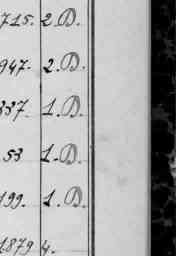 715. 2. D.
947. 2. D.
337. 1. D.
53 1. D.
199. 1. D.
1879 4.